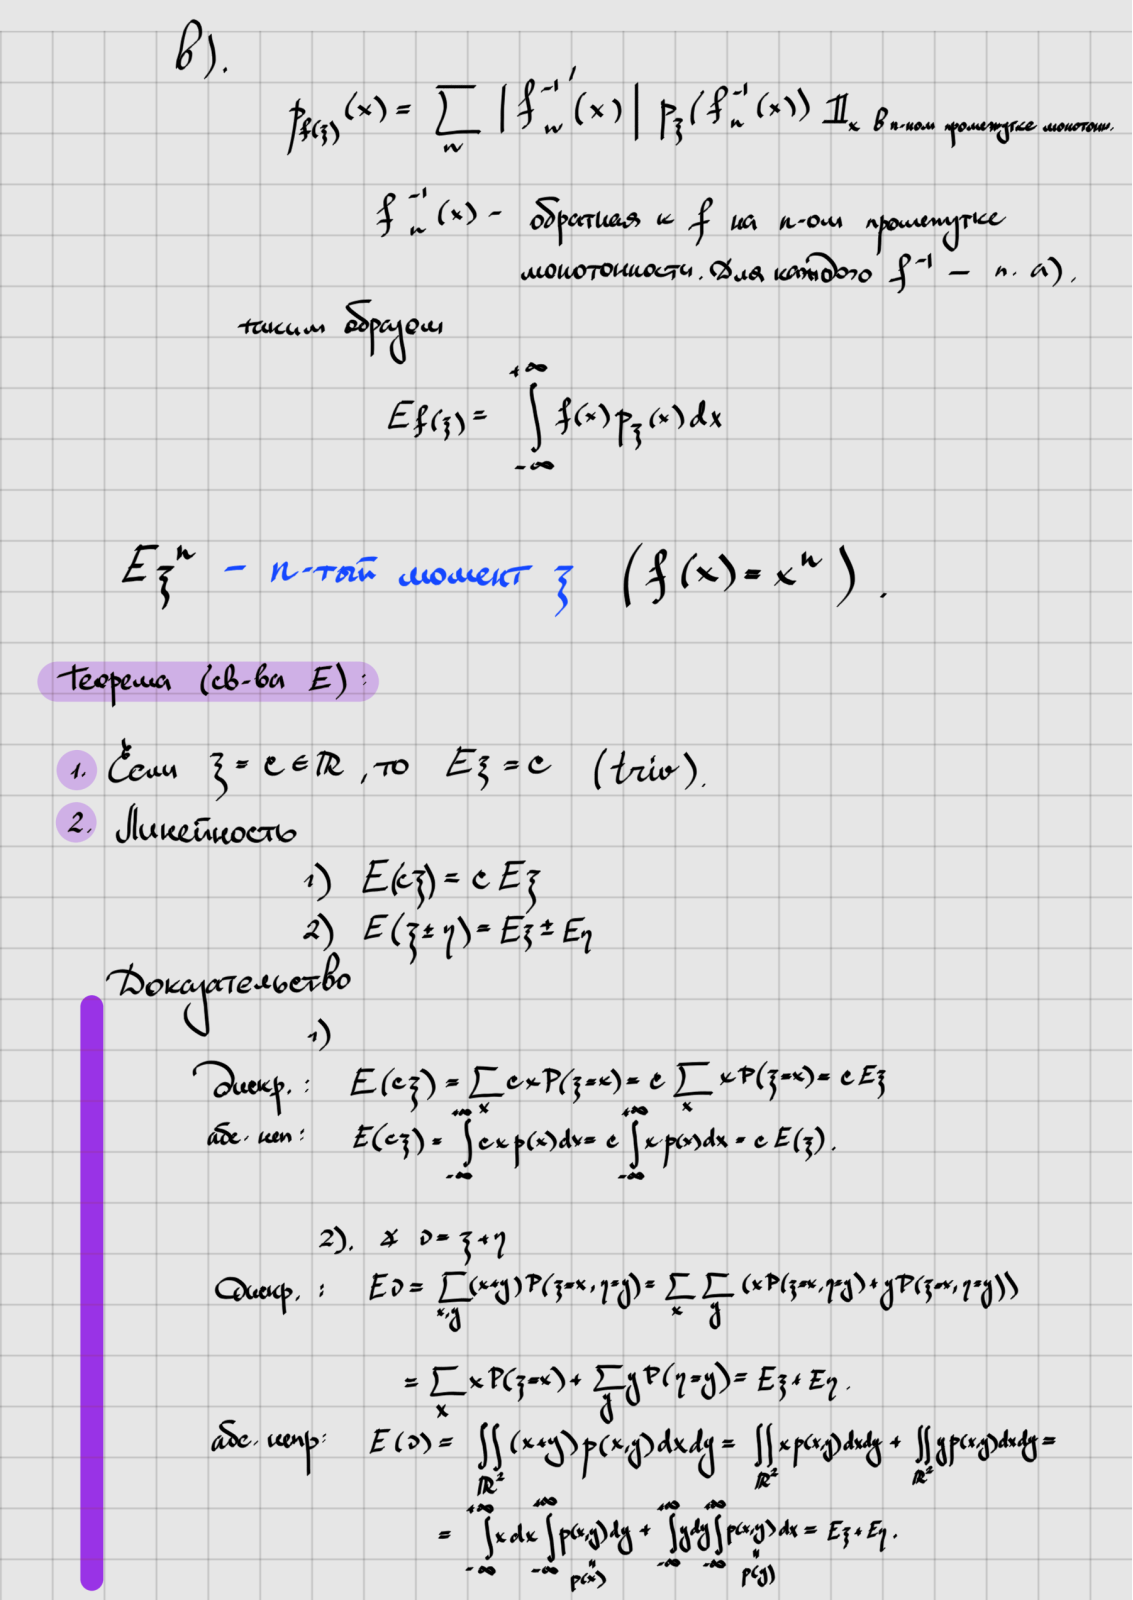 в).
p_{f(ξ)}(x) = ∑_n |f_n^{-1}'(x)| p_ξ(f_n^{-1}(x)) 𝟙_{x в n-ном промежутке монотонн.}
f_n^{-1}(x) - обратная к f на n-ом промежутке
монотонности. Для каждого f^{-1} - п. а).
таким образом
E f(ξ) = ∫_{-∞}^{+∞} f(x) p_ξ(x) dx
Eξ^n - n-тый момент ξ (f(x) = x^n).
Теорема (св-ва E):
1. Если ξ = c ∈ ℝ, то Eξ = c (triv).
2. Линейность
1) E(cξ) = c Eξ
2) E(ξ ± η) = Eξ ± Eη
Доказательство
1)
Дискр.: E(cξ) = ∑_x c x P(ξ=x) = c ∑_x x P(ξ=x) = c Eξ
абс. неп: E(cξ) = ∫_{-∞}^{+∞} c x p(x) dx = c ∫_{-∞}^{+∞} x p(x) dx = c E(ξ).
2). ∡ ν = ξ + η
Дискр.: Eν = ∑_{x,y} (x+y) P(ξ=x, η=y) = ∑_x ∑_y (x P(ξ=x, η=y) + y P(ξ=x, η=y))
= ∑_x x P(ξ=x) + ∑_y y P(η=y) = Eξ + Eη.
абс. непр: E(ν) = ∬_{ℝ²} (x+y) p(x,y) dx dy = ∬_{ℝ²} x p(x,y) dx dy + ∬_{ℝ²} y p(x,y) dx dy =
= ∫_{-∞}^{+∞} x dx ∫_{-∞}^{+∞} p(x,y) dy + ∫_{-∞}^{+∞} y dy ∫_{-∞}^{+∞} p(x,y) dx = Eξ + Eη.
" p(x) " p(y)